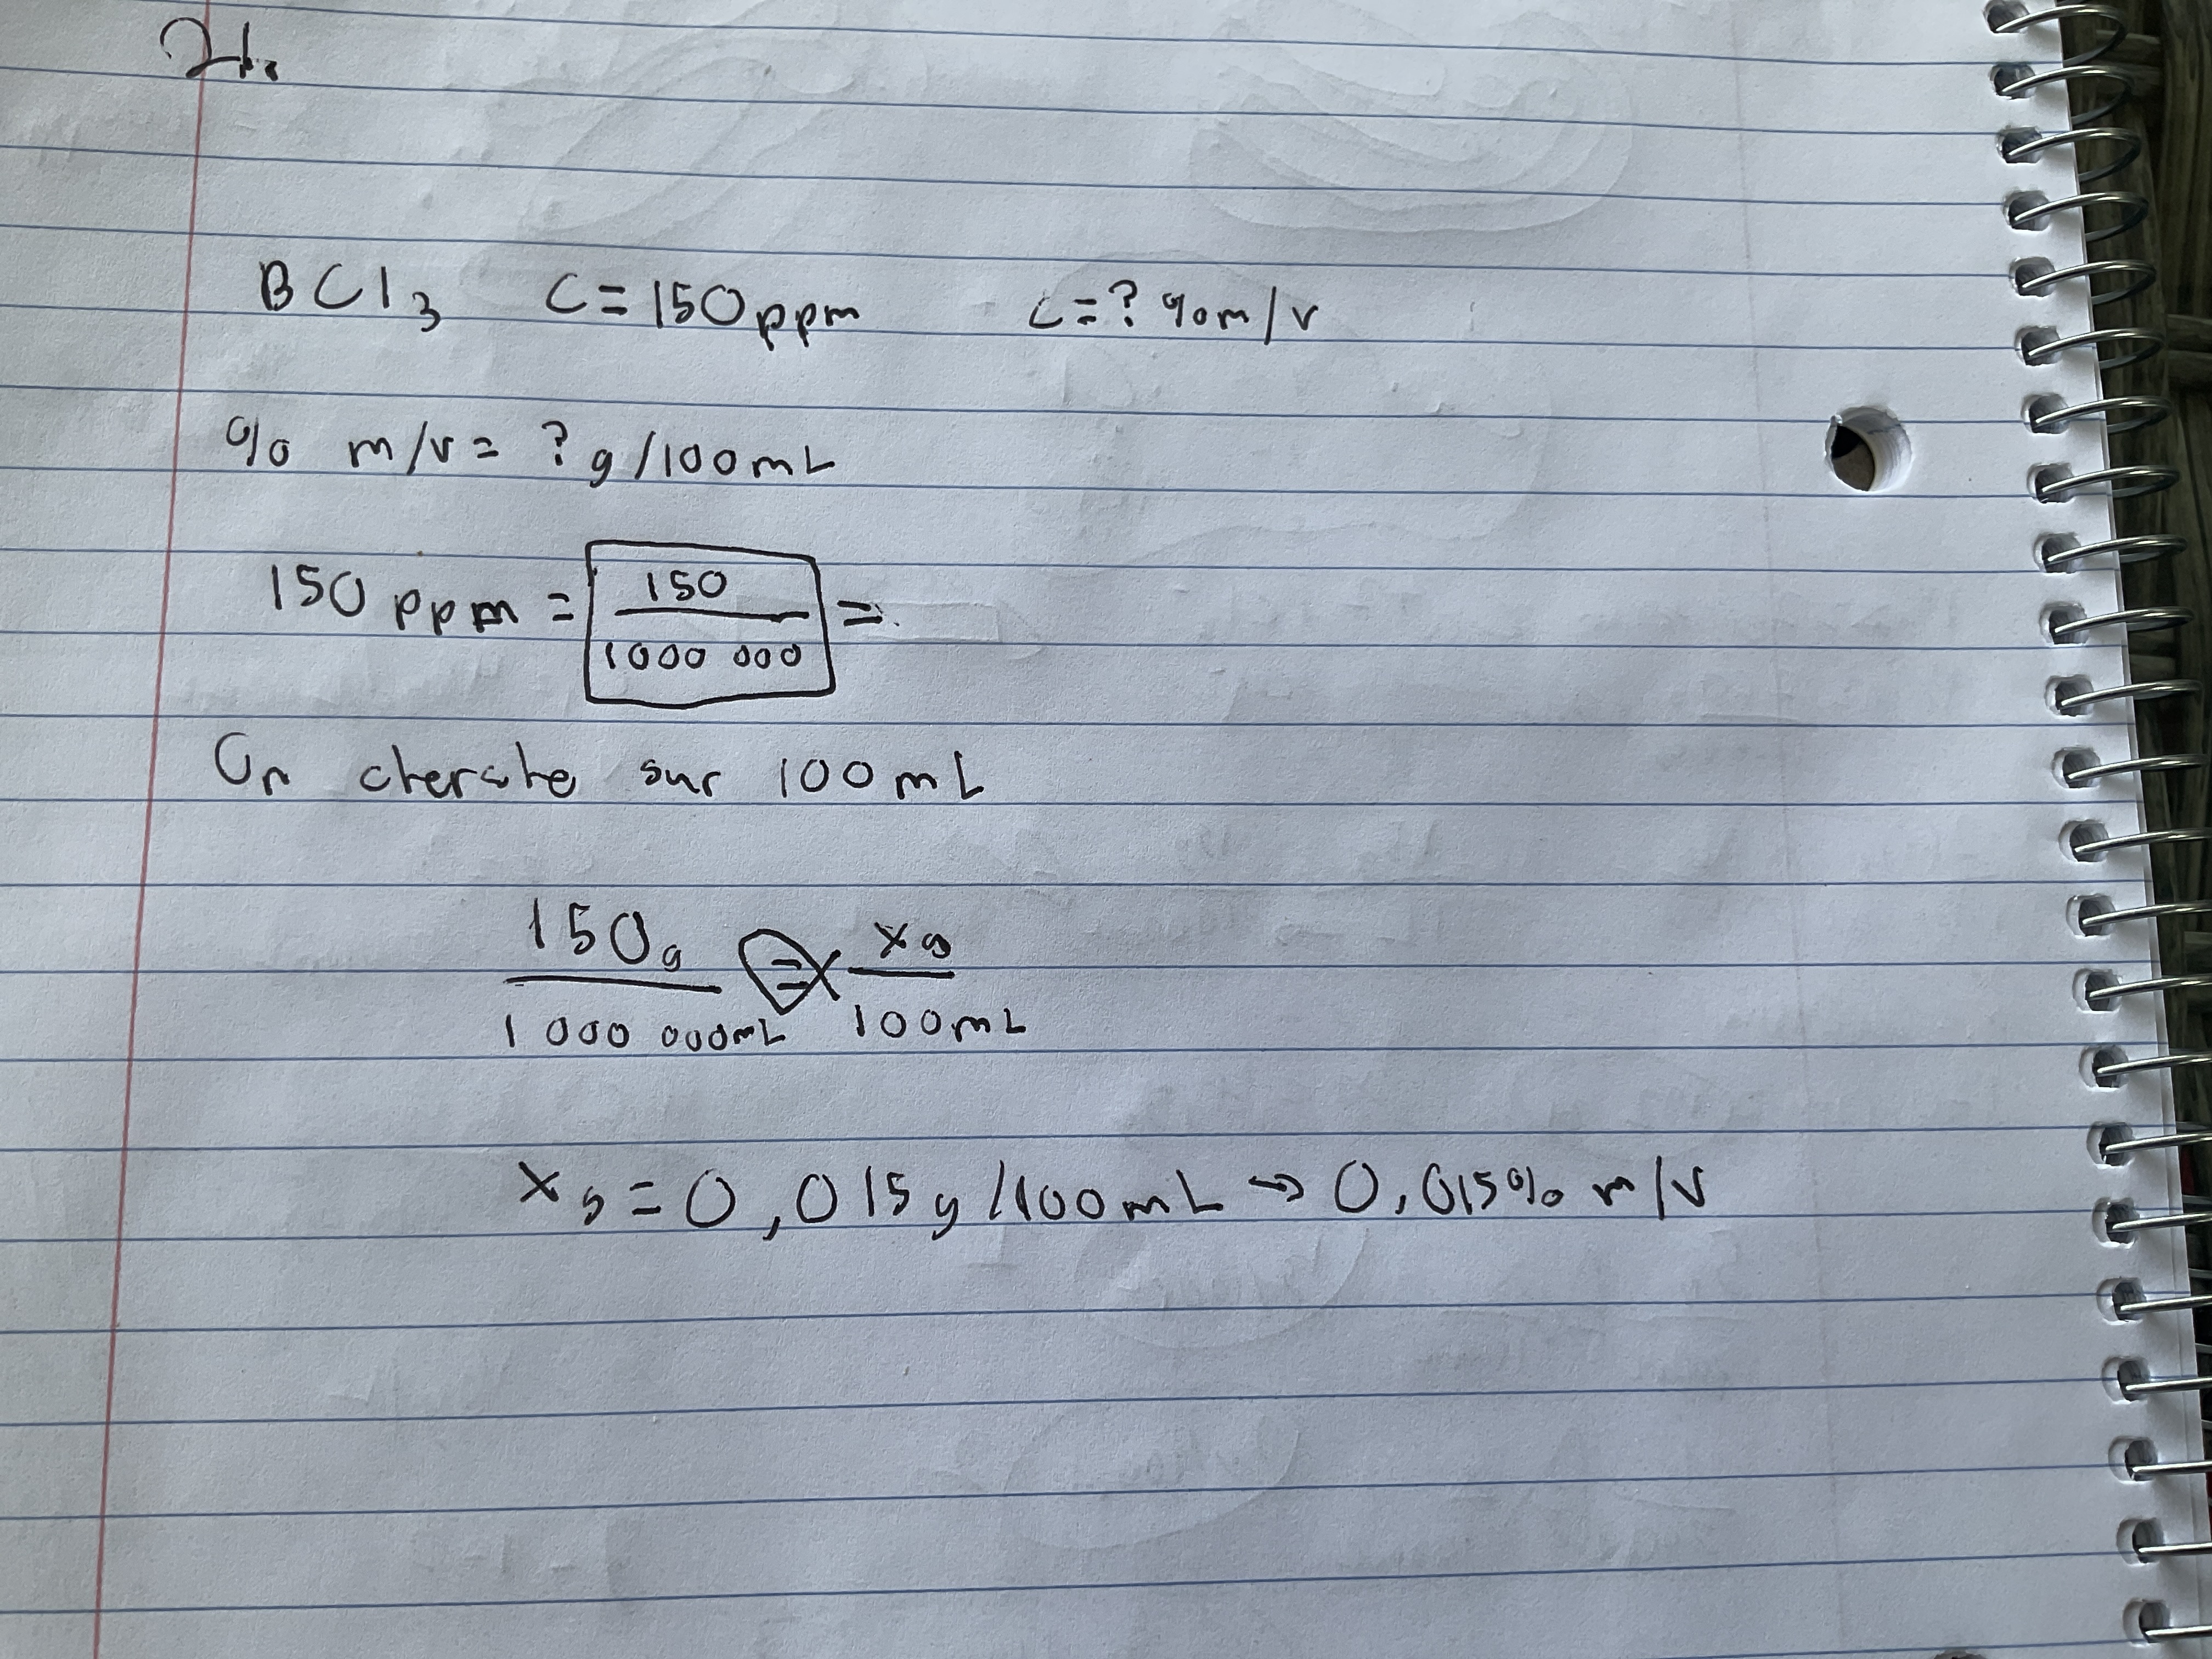 21.
BCl3 C=150ppm C=? % m/v
% m/v = ? g/100mL
150 ppm = 150/1000 000 =
On cherche sur 100 mL
150g/1 000 000mL = xg/100mL
xg = 0,015g/100mL → 0,015% m/v